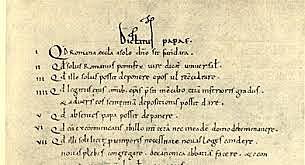 Dictatus papae.
I Qd Romana eccla a solo dno sit fundata.
II Qd solus Romanus pontifex iure dicat universal.
III Qd ille solus possit deponere epos ul reconciliare.
IIII Qd legatus eius omnib. epis presit in concilio etiam inferioris gradus.
& adversus eos sententiam depositionis possit dare.
V Qd absentes papa possit deponere.
VI Qd cu excommunicatis ab illo inter cetera nec in eade domo debemus manere.
VII Qd illi soli licet pro temporis necessitate novas leges condere.
novas plebes congregare. de canonica abbatiam facere. &